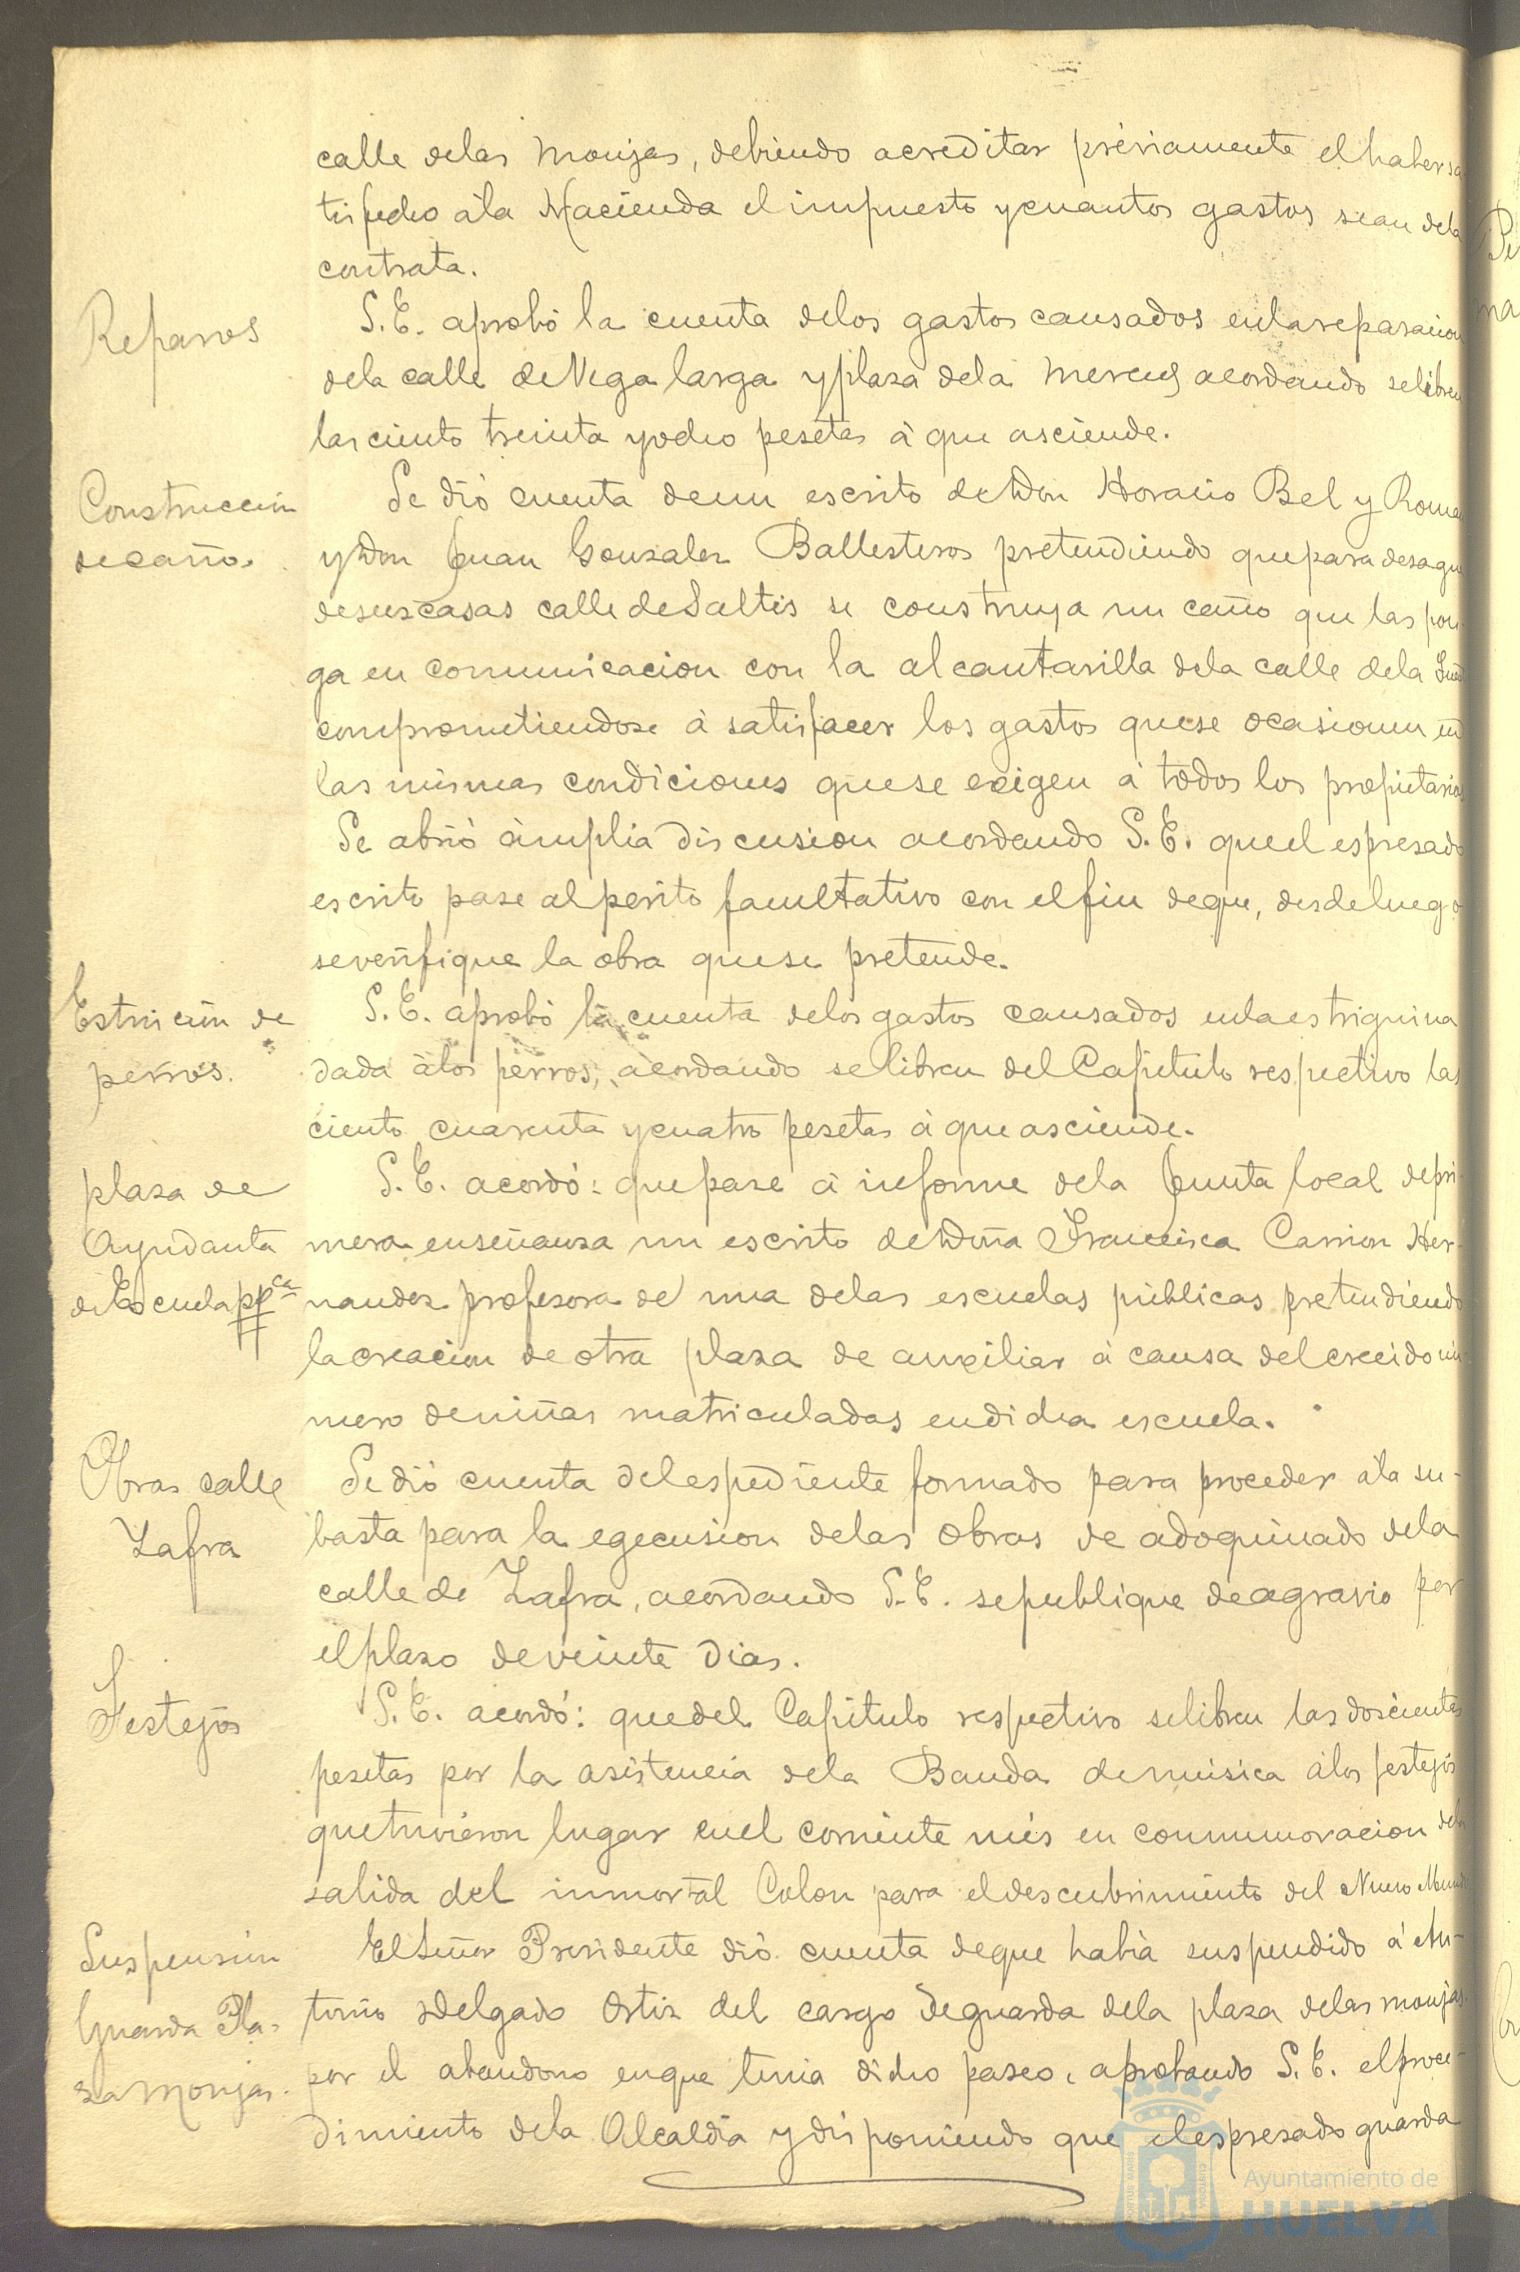 calle delas Monjas, debiendo acreditar préviamente el haber sa
tisfecho á la Hacienda el impuesto y cuantos gastos sean dela
contrata.
Reparos
S. E. aprobó la cuenta delos gastos causados enla reparacion
dela calle de Vega larga y plaza dela Merced acordando se libren
las ciento treinta y ocho pesetas á que asciende.
Construccion
de caño.
Se dió cuenta de un escrito de Don Horacio Bel y Roma
y Don Juan Gonzalez Ballesteros pretendiendo que para desagüe
de sus casas calle de Saltés se construya un caño que las pon
ga en comunicacion con la alcantarilla dela calle dela
comprometiendose á satisfacer los gastos que se ocasionen en
las mismas condiciones que se exigen á todos los propietarios
Se abrió ámplia discusion acordando S. E. que el espresado
escrito pase al perito facultativo con el fin de que, desde luego
se verifique la obra que se pretende.
Estricnina de
perros.
S. E. aprobó la cuenta delos gastos causados enla estriguina
dada álos perros, acordando se libren del Capítulo respectivo las
ciento cuarenta y cuatro pesetas á que asciende.
plaza de
Ayudanta
de Escuela pp.ca
S. E. acordó: que pase á informe dela Junta local de pri-
mera enseñanza un escrito de Doña Francisca Carrion Her-
nandez profesora de una delas escuelas públicas pretendiendo
la creacion de otra plaza de auxiliar á causa del crecido nú-
mero de niñas matriculadas en dicha escuela.
Obras calle
Zafra
Se dió cuenta del espediente formado para proceder á la su-
basta para la egecusion delas obras de adoquinado dela
calle de Zafra, acordando S. E. se publique de agravio por
el plazo de veinte dias.
Festejos
S. E. acordó: que del Capítulo respectivo se libren las doscientas
pesetas por la asistencia dela Banda de música á los festejos
que tuvieron lugar en el corriente més en conmemoracion dela
salida del inmortal Colon para el descubrimiento del Nuevo Mundo
Suspension
Guarda Pla-
za Monjas.
El Señor Presidente dió cuenta de que habia suspendido á An-
tonio Delgado Ortiz del cargo de guarda dela plaza delas monjas
por el abandono en que tenia dicho paseo, aprobando S. E. el proce-
dimiento dela Alcaldia y disponiendo que el espresado guarda
Ayuntamiento de
HUELVA